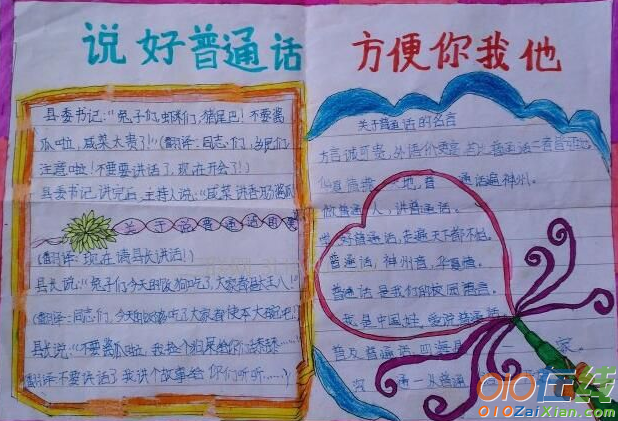 说好普通话 方便你我他
县委书记:“兔子们,虾米们,猪尾巴!不要酱
瓜啦,咸菜太贵了!”(翻译:同志们,乡民们
注意啦!不要讲话了,现在开会了!)
县委书记讲完后,主持人说:“咸菜讲香肠酱瓜
关于说普通话用
(翻译:现在请县长讲话!)
县长说:“兔子们,今天的饭狗吃了,大家都是大王八!
(翻译:同志们,今天的饭够吃了,大家都使大碗吧!
县长说:“不要酱瓜啦,我捡个狗屎给你们舔舔……
(翻译:不要讲话了,我讲个故事给你们听听……)
关于普通话的名言
方言诚可贵,外语价更高,
地,普 通话遍神州。
做普通人,讲普通话。
好普通话,走遍天下都不怕。
普通话,神州音,华夏情。
普通话是我们的校园语言。
我是中国娃,爱说普通话
普及普通话,四海是 一 家。
通-从普通
010在线
010ZaiXian.com